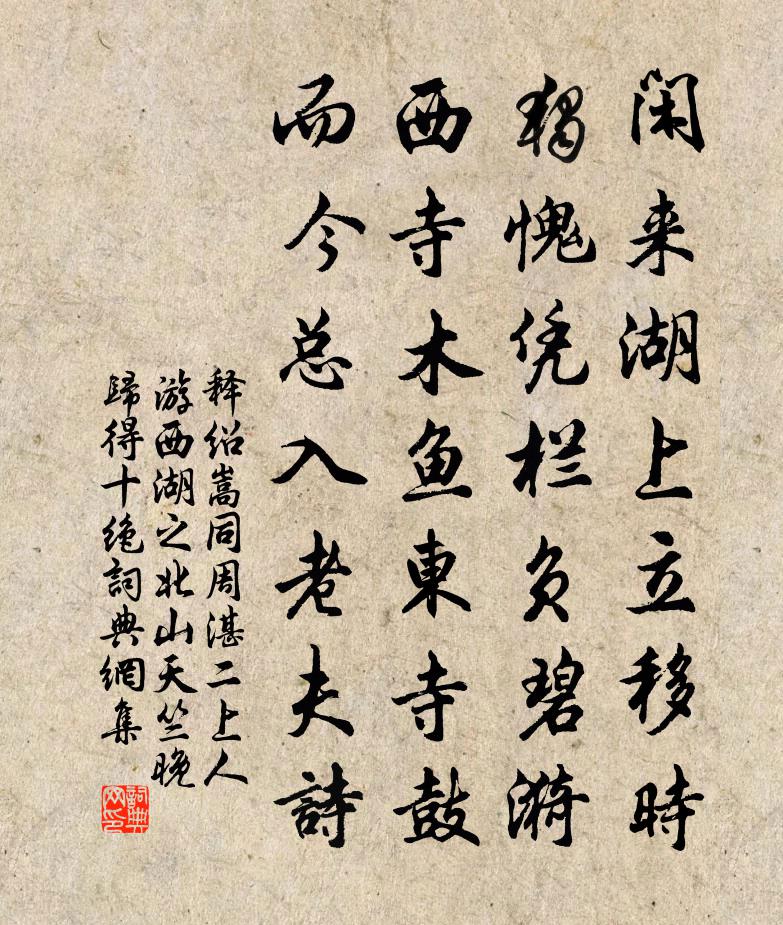 闲来湖上立移時
独愧凭栏负碧漪
西寺木鱼東寺鼓
而今总入老夫詩
释绍嵩同周湛二上人
游西湖之北山天竺晚
歸得十绝詞典網集
詞典网印